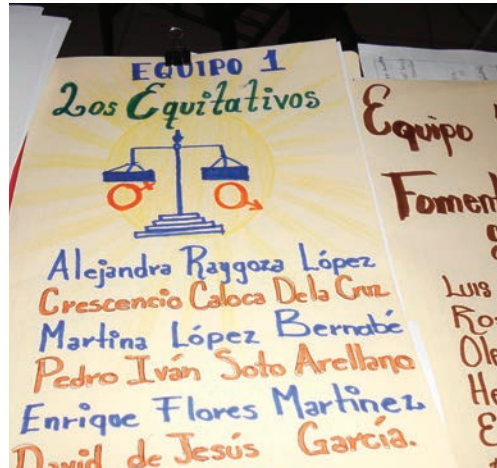 EQUIPO 1
Los Equitativos
Alejandra Raygoza López
Crescencio Caloca De la Cruz
Martina López Bernabé
Pedro Iván Soto Arellano
Enrique Flores Martinez
David de Jesús García.
Equipo
Fomen
LUIS